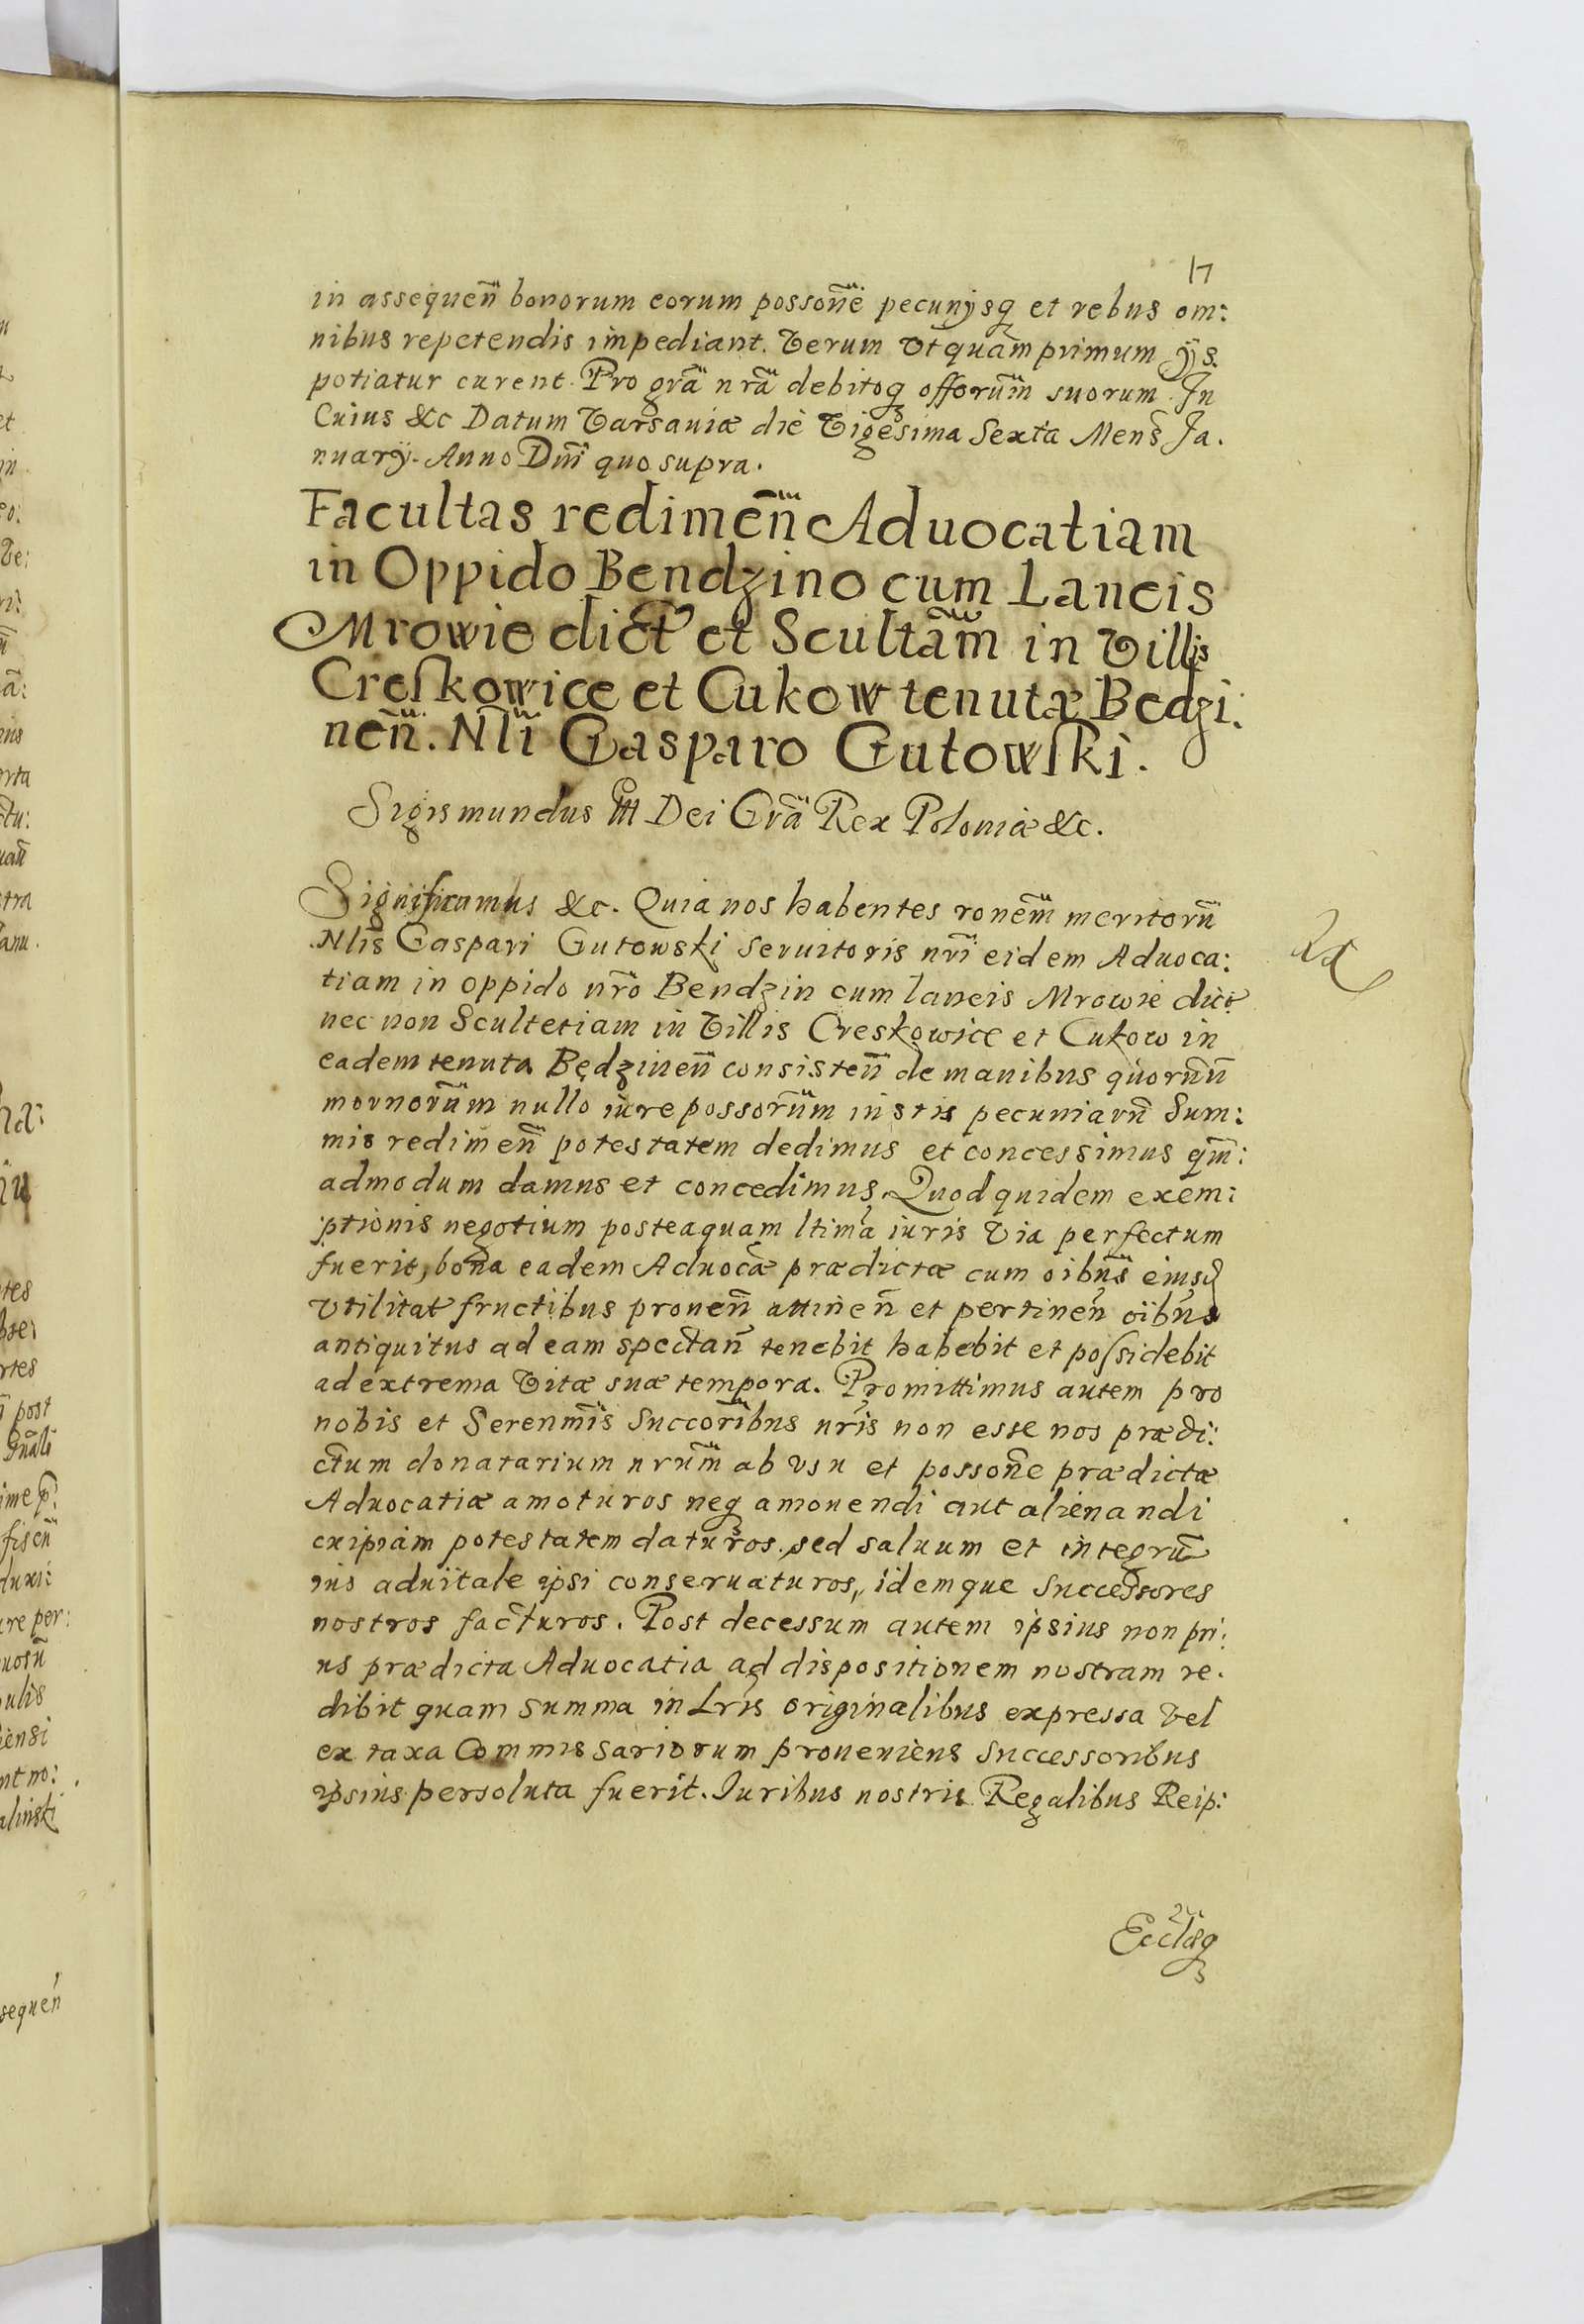 17
in assequen̄ bonorum eorum possonē pecunijsq et rebus om:
nibus repetendis impediant. Verum Vt quam primum ijs
potiatur curent. Pro grā nrā debitoq offorum̄ suorum. In
Cuius &c Datum Varsaviæ die Vigesima Sexta Mens̄ Ja.
nuarij. Anno Dn̄i quo supra.
Facultas redimen̄ Aduocatiam
in Oppido Bendzino cum Laneis
Mrowie dict et Scultām in Villis
Creskowice et Cukow tenutæ Bedzi:
nen̄. Nli Gasparo Gutowski.
Sigismundus III Dei Grā Rex Poloniæ &c.
Significamus &c. Quia nos habentes ronem̄ meritorū
Nlis̄ Gaspari Gutowski seruitoris nrī eidem Aduoca:
tiam in oppido nrō Bendzin cum laneis Mrowie dict
nec non Scultetiam in Villis Creskowice et Cukow in
eadem tenuta Będzinen̄ consisten̄ de manibus quorum̄
movnorum̄ nullo iure possorum̄ iustis pecuniarū Sum:
mis redimen̄ potestatem dedimus et concessimus qm̄:
admodum damus et concedimus. Quod quidem exem:
ptionis negotium posteaquam ltimā iuris Via perfectum
fuerit, bona eadem Aduocæ prædictæ cum oibus̄ eiusd
Vtilitat fructibus prouen̄ attinen̄ et pertinen̄ oibus̄
antiquitus ad eam spectan̄ tenebit habebit et possidebit
ad extrema Vitæ suæ tempora. Promittimus autem pro
nobis et Serenmis̄ Succoribus̄ nrīs non esse nos prædi:
ctum donatarium nrum̄ ab vsu et possonē prædictæ
Aduocatiæ amoturos neq amouendi aut alienandi
cuipiam potestatem daturos. sed saluum et integrū
ius aduitale ipsi conseruaturos, idemque Successores
nostros facturos. Post decessum autem ipsius non pri:
us prædicta Aduocatia ad dispositionem nostram re.
dibit quam summa in Lrīs originalibus expressa Vel
ex taxa Commissariorum proueniens Successoribus
ipsius persoluta fuerit. Iuribus nostris Regalibus Reip:
Ecclæq